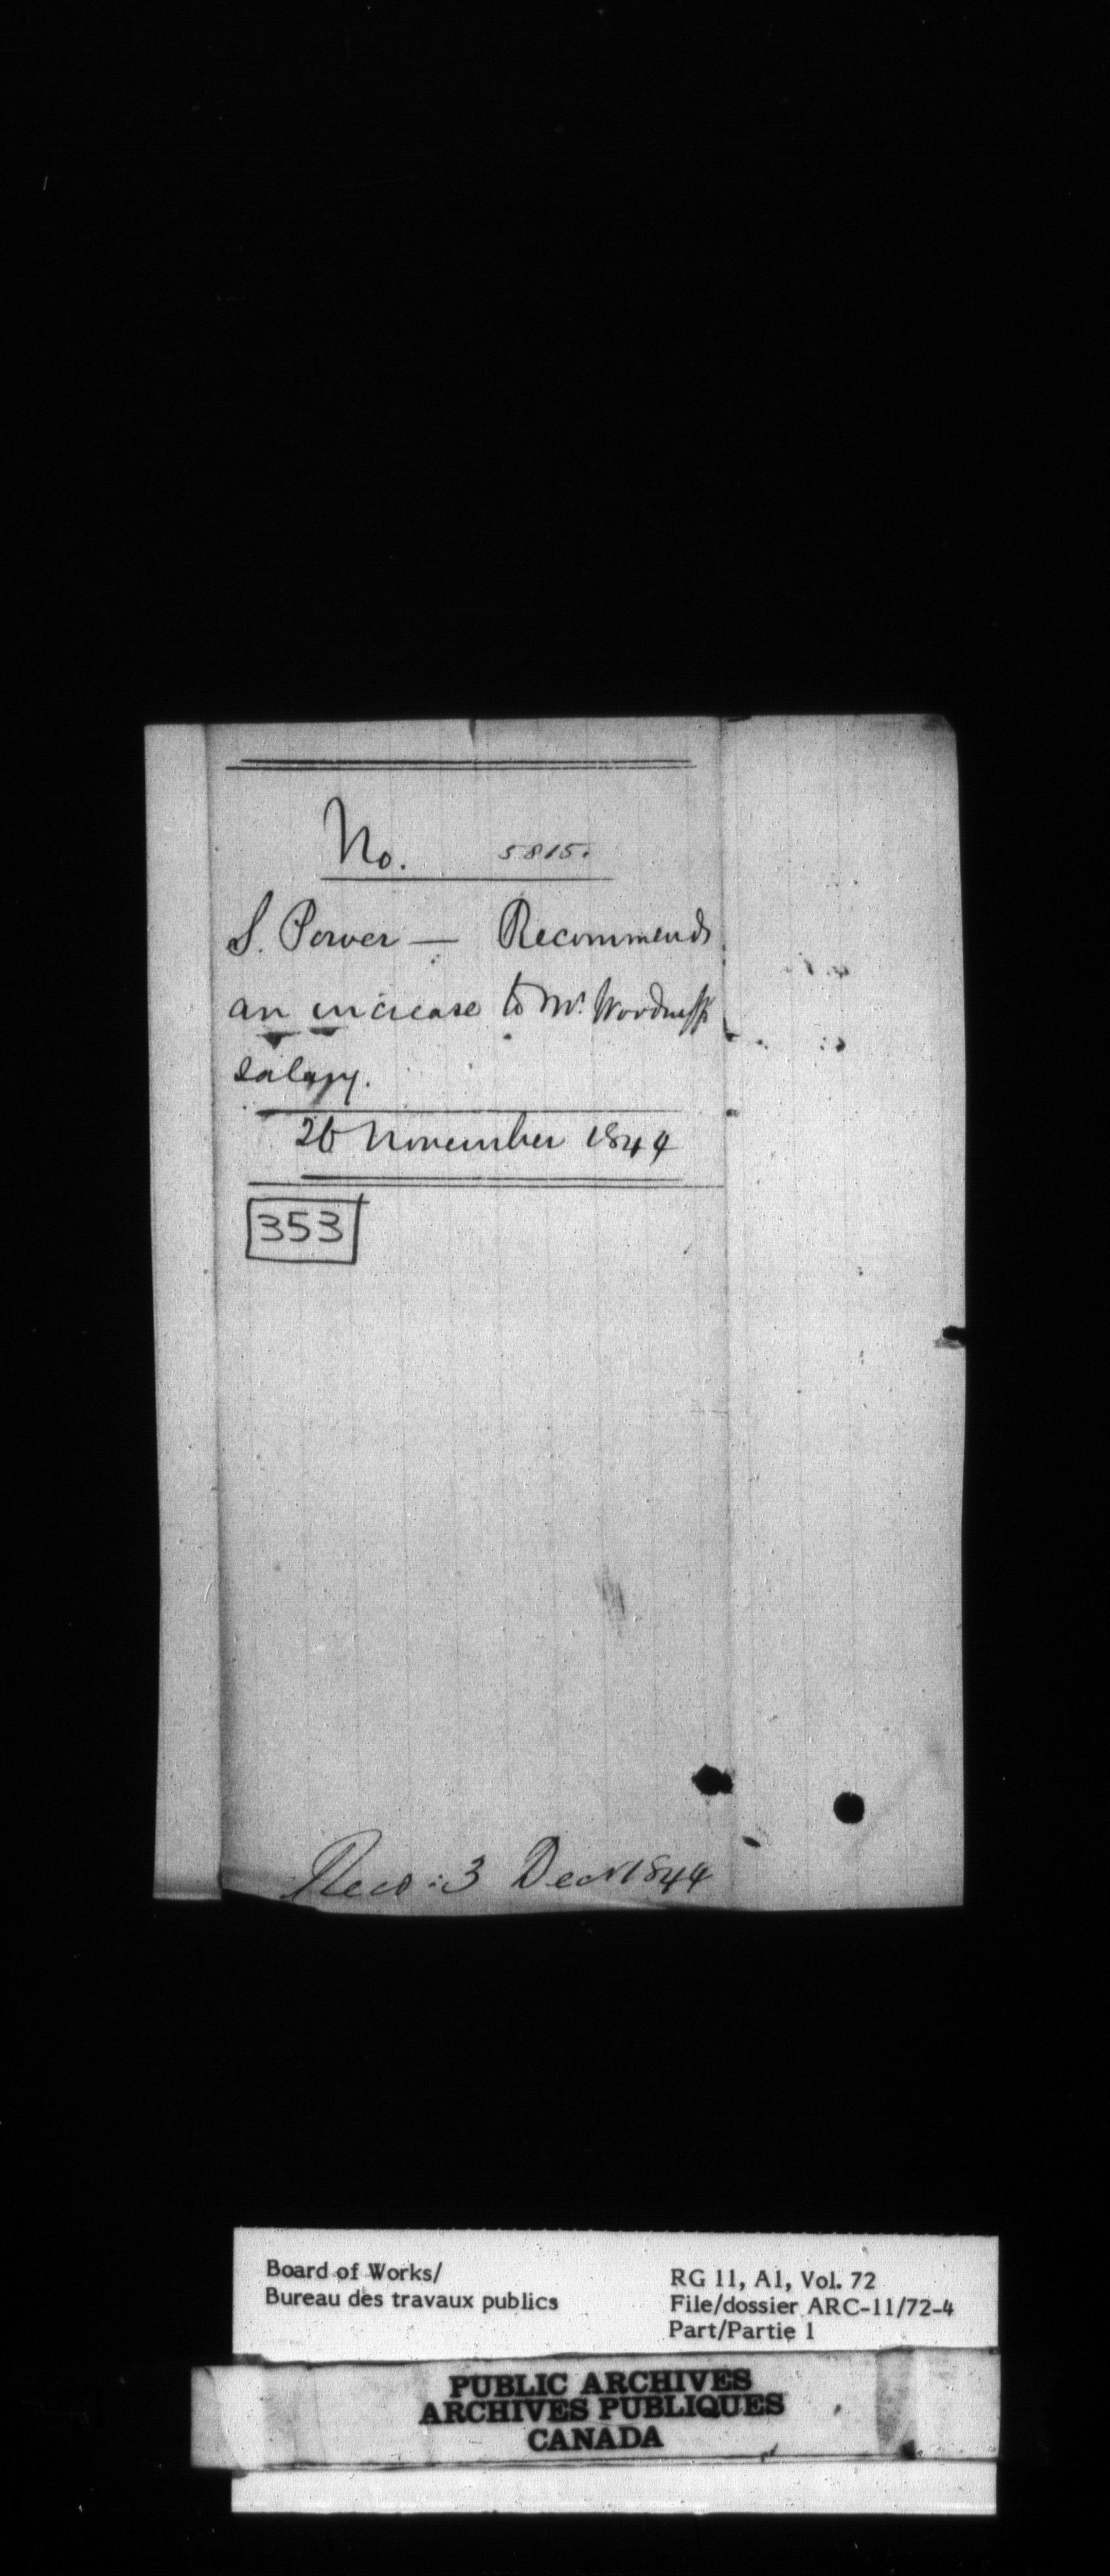 No. 5815.
S. Power — Recommends
an increase to Mr.
salary.
26 November 1844
353
Recd: 3 Decr 1844
Board of Works/
Bureau des travaux publics
RG 11, A1, Vol. 72
File/dossier ARC-11/72-4
Part/Partie 1
PUBLIC ARCHIVES
ARCHIVES PUBLIQUES
CANADA